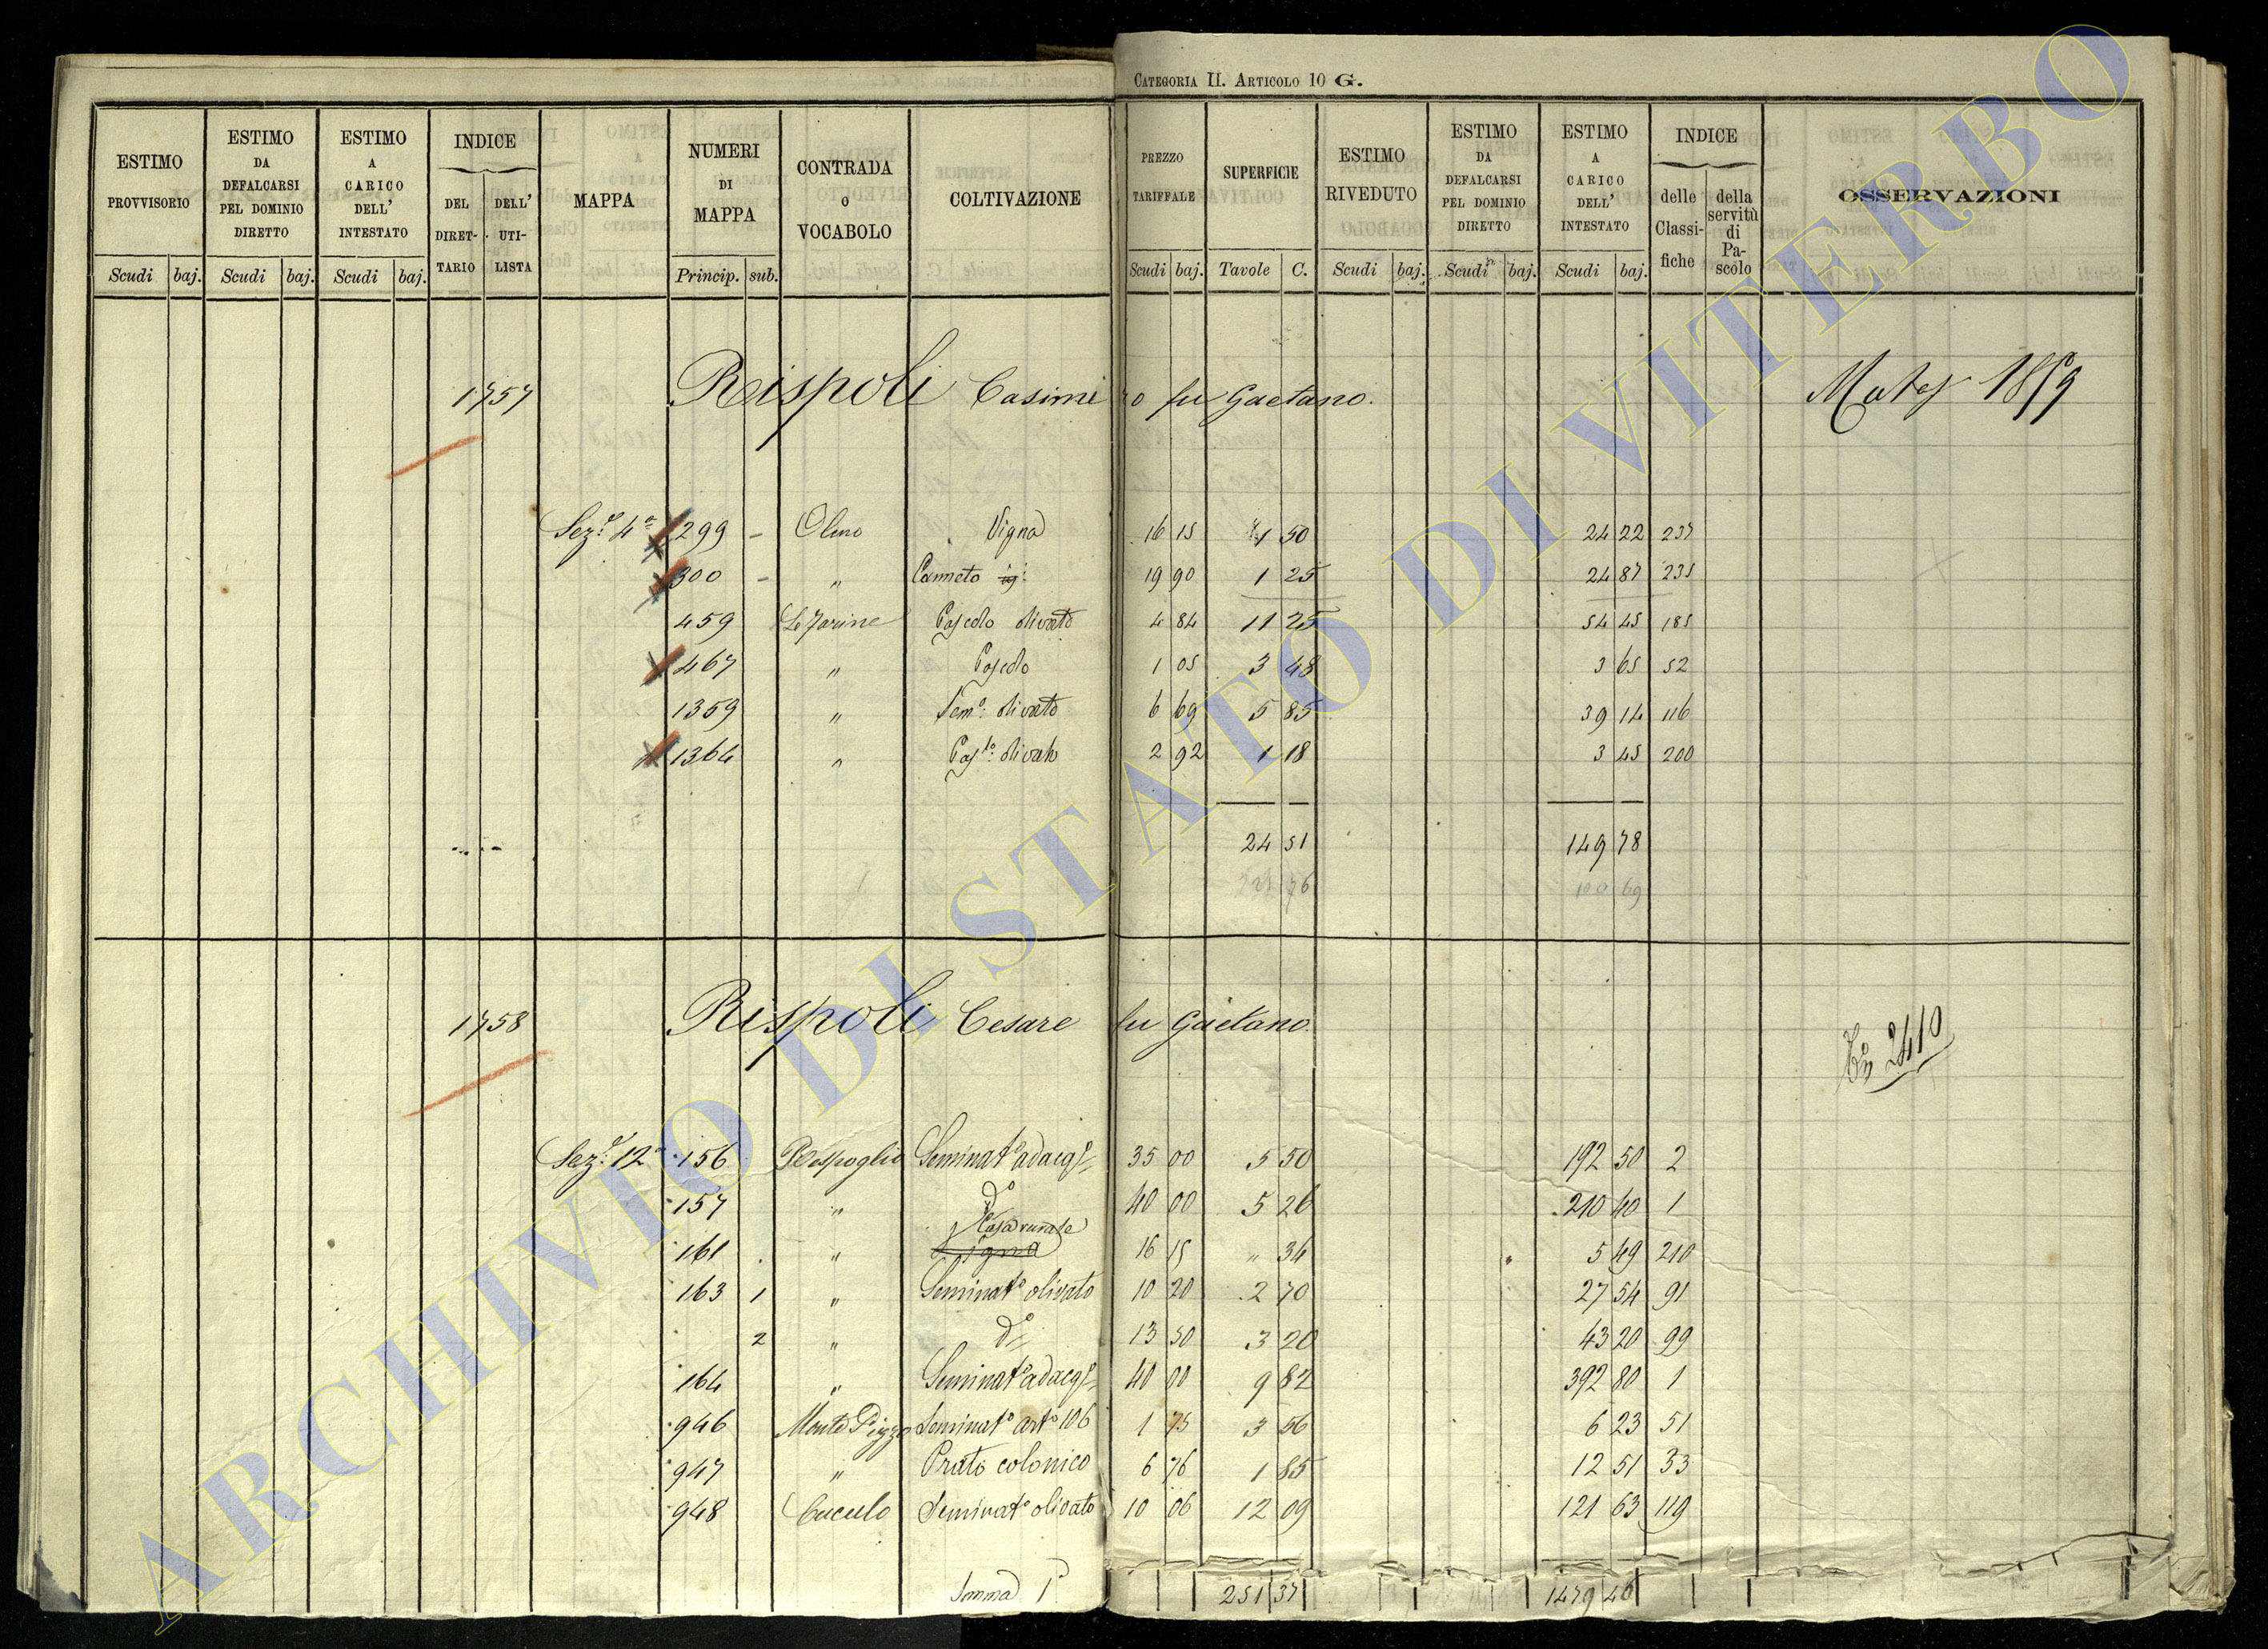 CATEGORIA II. ARTICOLO 10 G.
ESTIMO PROVVISORIO Scudi baj.
ESTIMO DA DEFALCARSI PEL DOMINIO DIRETTO Scudi baj.
ESTIMO A CARICO DELL' INTESTATO Scudi baj.
INDICE DEL DIRET-TARIO DELL' UTI-LISTA
MAPPA
NUMERI DI MAPPA Princip. sub.
CONTRADA o VOCABOLO
COLTIVAZIONE
PREZZO TARIFFALE Scudi baj.
SUPERFICIE Tavole C.
ESTIMO RIVEDUTO Scudi baj.
ESTIMO DA DEFALCARSI PEL DOMINIO DIRETTO Scudi baj.
ESTIMO A CARICO DELL' INTESTATO Scudi baj.
INDICE delle Classi-fiche della servitù di Pa-scolo
OSSERVAZIONI
1757 Rispoli Casimiro fu Gaetano. 1859
Sez.e 4a 299 - Olmo Vigna 16 15 1 50 24 22 237
300 - " Canneto 19 90 1 25 24 87 235
459 Pascolo olivato 4 84 11 25 54 45 185
467 " Pascolo 1 05 3 48 3 65 52
1359 " Sem.o olivato 6 69 5 85 39 14 116
1364 " Pas.lo olivato 2 92 1 18 3 45 200
24 51 149 78
1758 Rispoli Cesare fu Gaetano. 2410
Sez.e 12a 156 Respoglio Seminat.o adacq.e 35 00 5 50 192 50 2
157 " do 40 00 5 26 210 40 1
Casa rurale
161 " Vigna 16 15 " 34 5 49 210
163 1 " Seminat.o olivato 10 20 2 70 27 54 91
2 " do 13 50 3 20 43 20 99
164 " Seminat.o adacq.e 40 00 9 82 392 80 1
946 Monte Pizzo Seminat.o art.o 106 1 75 3 56 6 23 51
947 " Prato colonico 6 76 1 85 12 51 33
948 Cuculo Seminat.o olivato 10 06 12 09 121 63 119
Somma 251 37 1479 46
ARCHIVIO DI STATO DI VITERBO